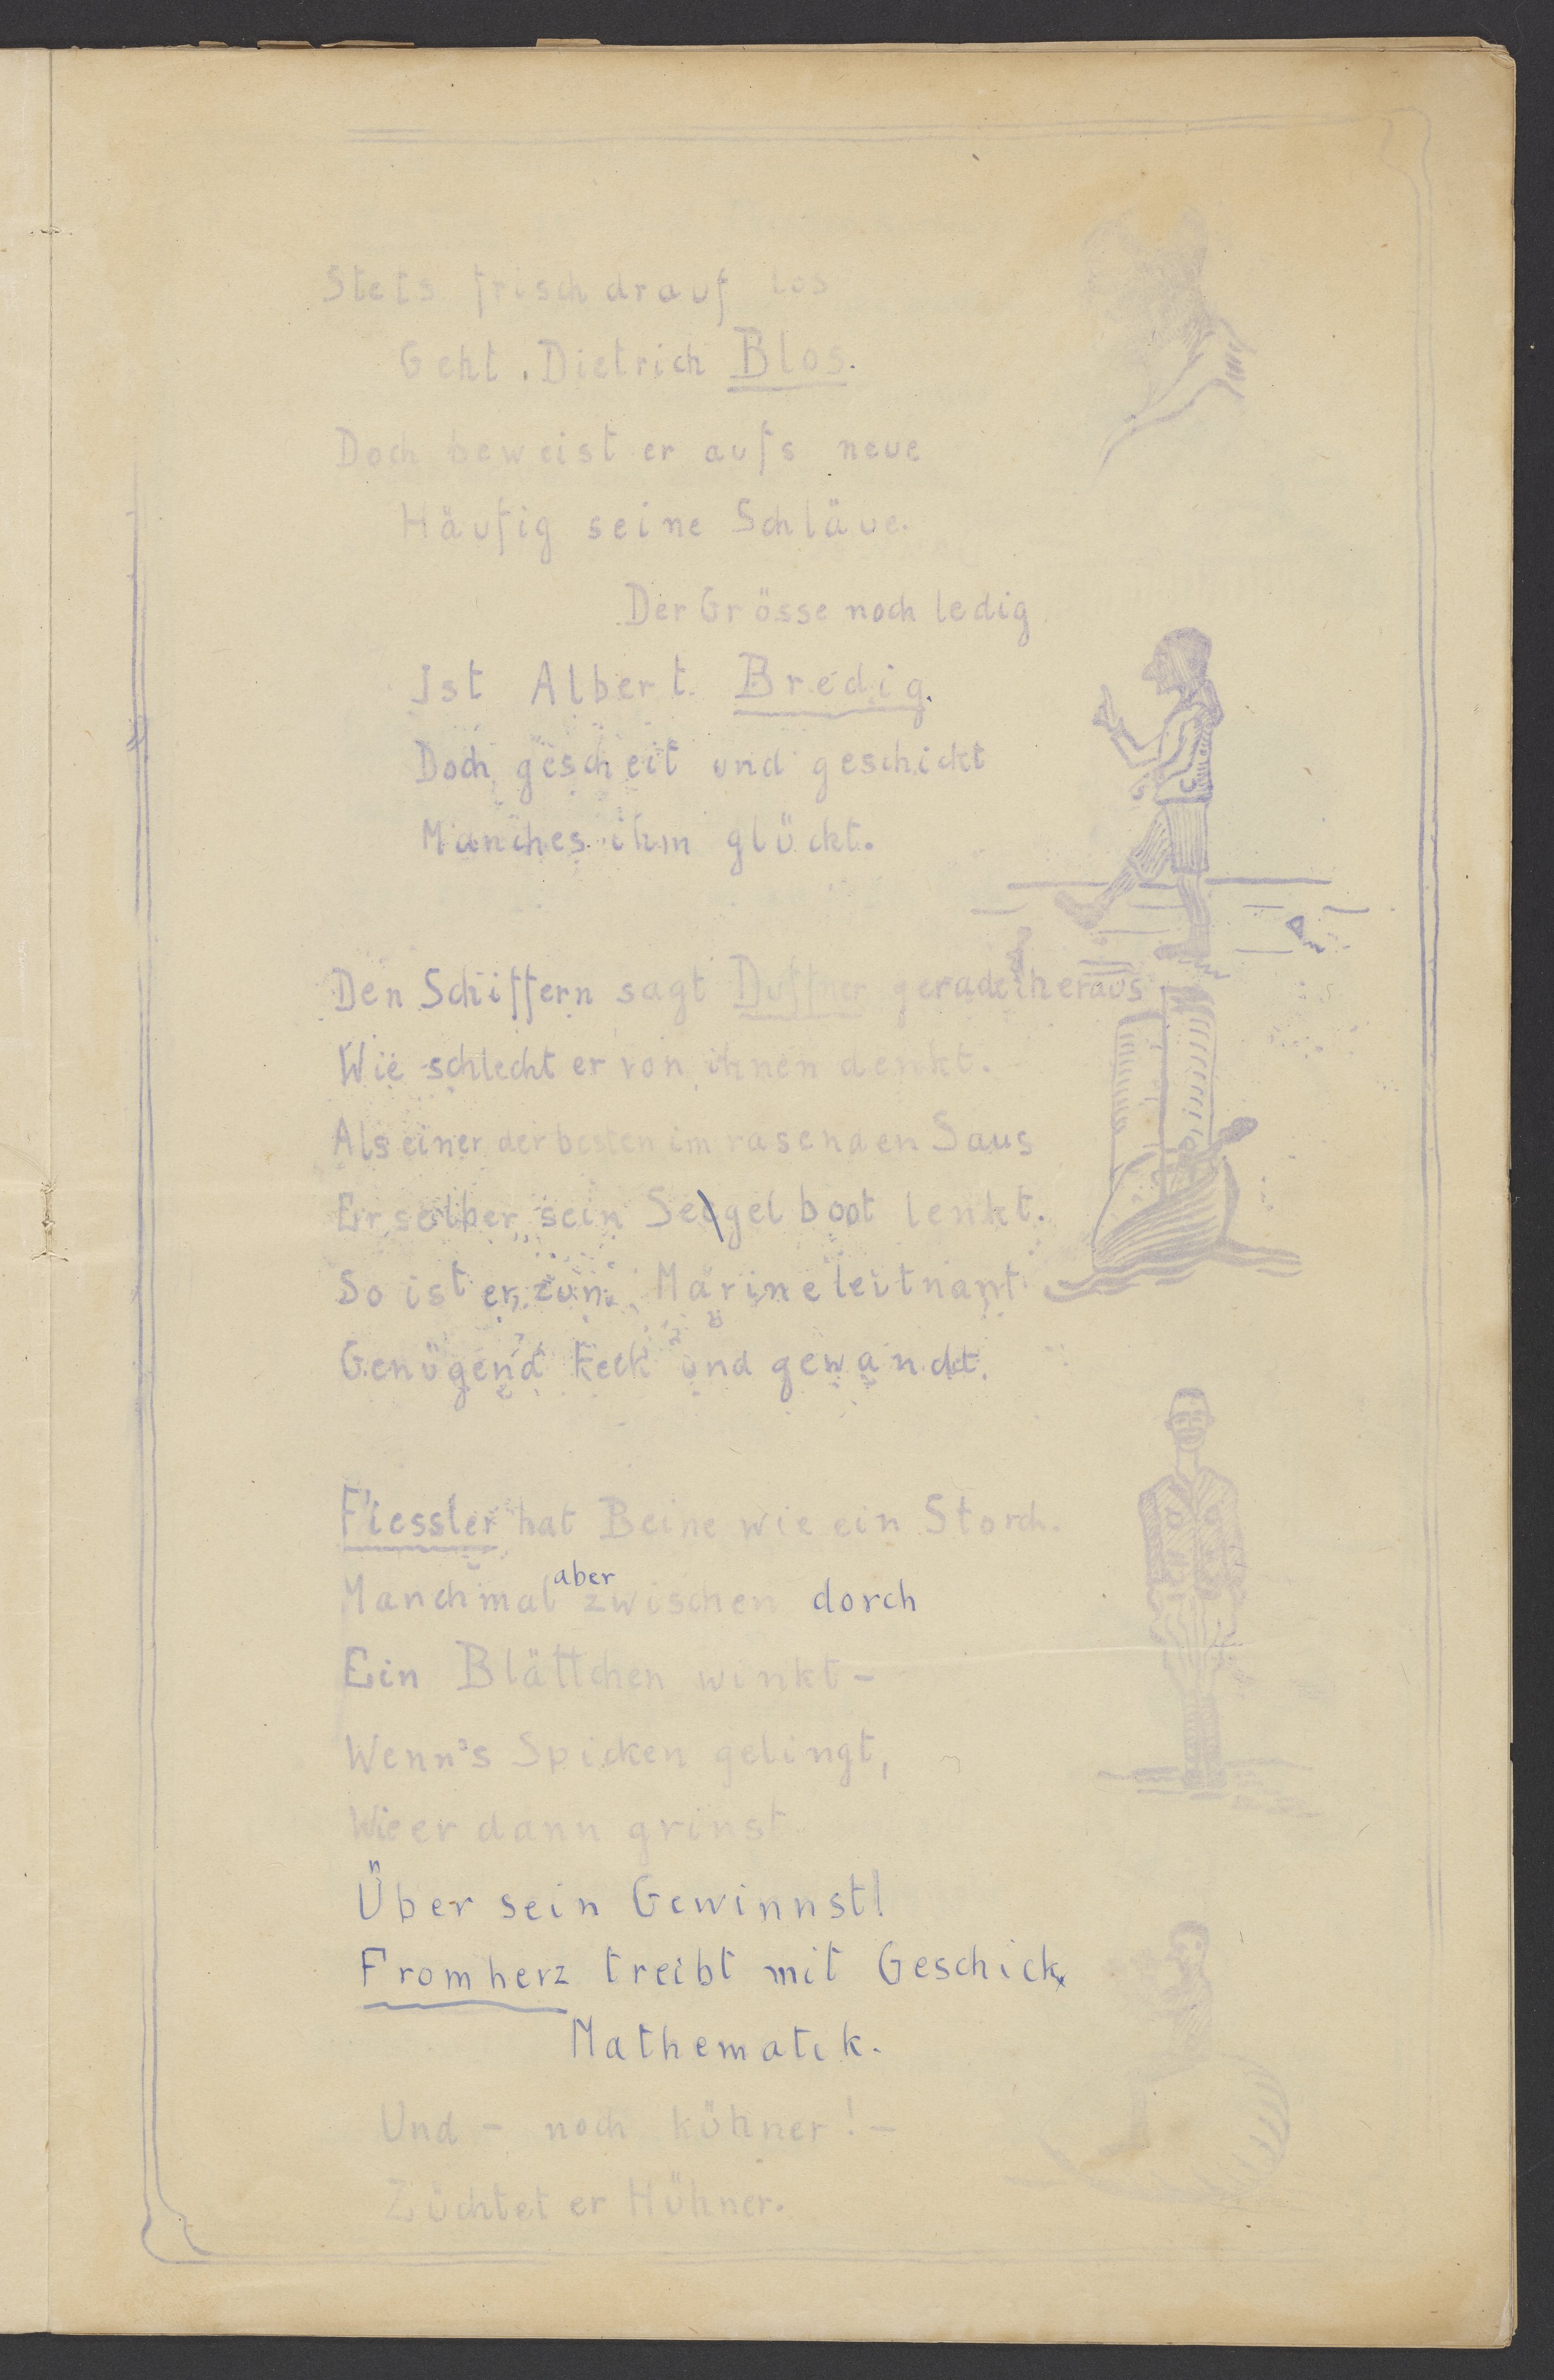 Stets frisch drauf los
Geht Dietrich Blos.
Doch beweist er aufs neue
Häufig seine Schläue.
Der Grösse noch ledig
Ist Albert Bredig.
Doch gescheit und geschickt
Manches ihm glückt.
Den Schiffern sagt Duffner gerade heraus
Wie schlecht er von ihnen denkt.
Als einer der besten im rasenden Saus
Er selber sein Segelboot lenkt.
So ist er zum Marineleitnant
Genügend keck und gewandt.
Fiessler hat Beine wie ein Storch.
Manchmal aber zwischen dorch
Ein Blättchen winkt –
Wenn's Spicken gelingt,
Wie er dann grinst
Über sein Gewinnst!
Fromherz treibt mit Geschick
Mathematik.
Und – noch kühner! –
Züchtet er Hühner.